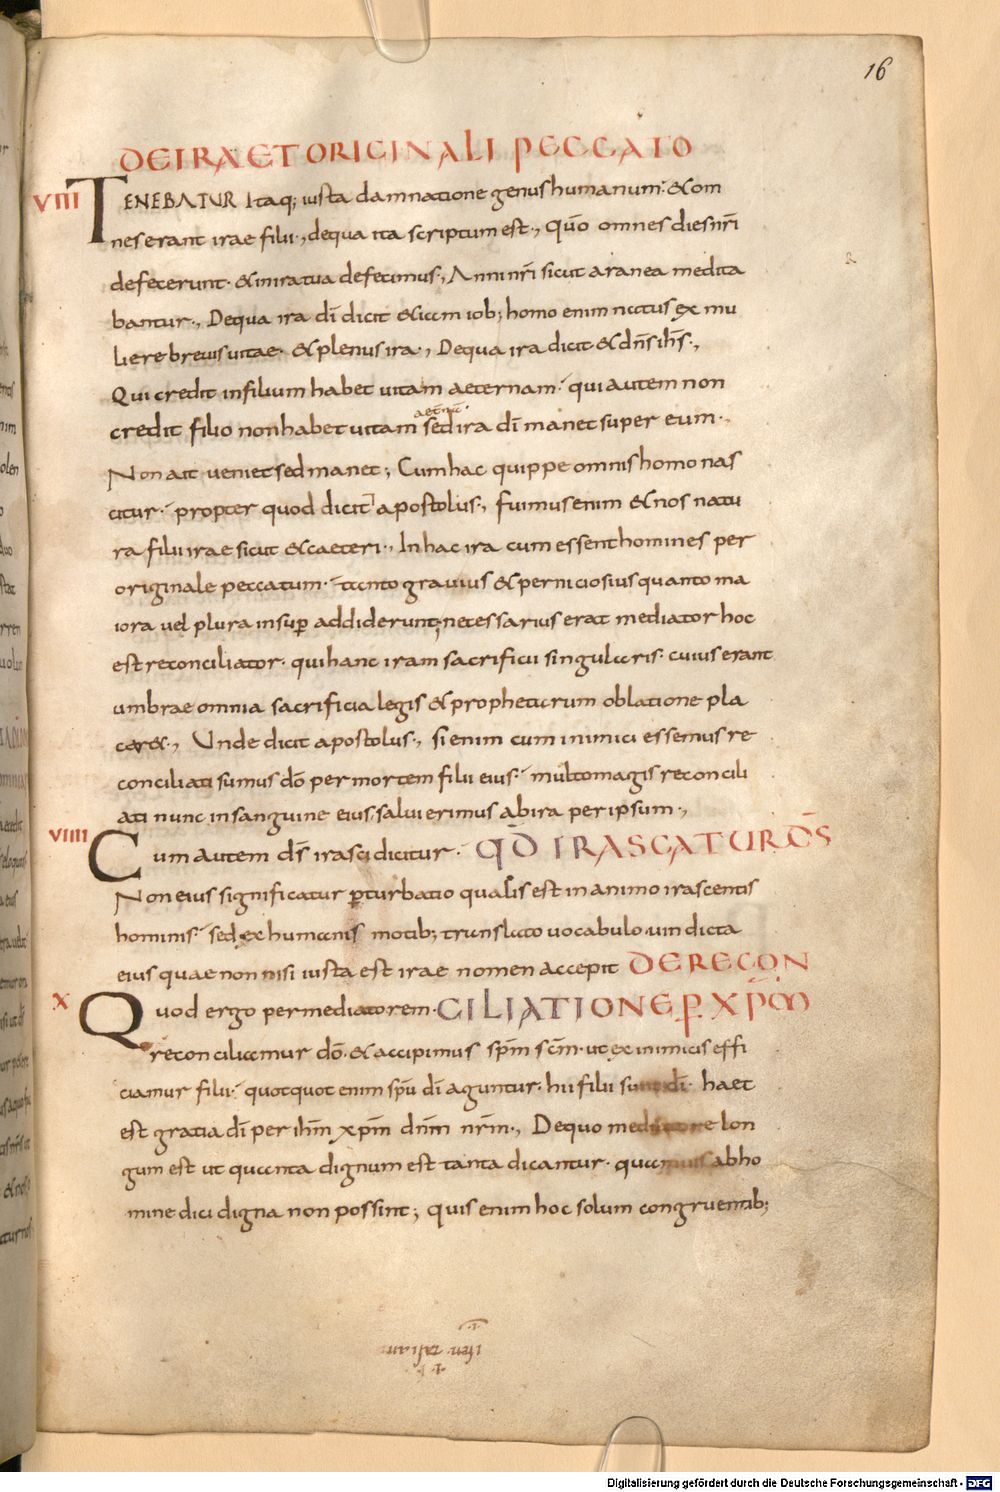 16
DE IRA ET ORIGINALI PECCATO
VIII TENEBATUR Itaq; iusta damnatione genus humanum. & om
nes erant irae filii., de qua ita scriptum est., Qūo omnes dies nr̄i
defecerunt. & in ira tua defecimus., Anni nr̄i sicut aranea medita
bantur., De qua ira dī dicit &iam iob; homo enim natus ex mu
liere breuis uitae. & plenus ira., De qua ira dicit & dn̄s ih̄s.,
Qui credit in filium habet uitam aeternam. qui autem non
credit filio non habet uitam sed ira dī manet super eum.,
Non ait ueniet sed manet; Cum hac quippe omnis homo nas
citur. propter quod dicit apostolus., fuimus enim & nos natu
ra filii irae sicut & caeteri., In hac ira cum essent homines per
originale peccatum. tanto grauius & perniciosius quanto ma
iora uel plura insup̄ addiderunt; necessarius erat mediator hoc
est reconciliator. qui hanc iram sacrificii singularis. cuius erant
umbrae omnia sacrificia legis & prophetarum oblatione pla
car&., Unde dicit apostolus., si enim cum inimici essemus re
conciliati sumus dō per mortem filii eius. multo magis reconcili
ati nunc in sanguine eius. salui erimus ab ira per ipsum.,
VIIII Cum autem dī irasci dicitur. QD̄ IRASCATUR DS̄
Non eius significatur p̄turbatio qualis est in animo irascentis
hominis. sed ex humanis motib; translato uocabulo uindicta
eius quae non nisi iusta est irae nomen accepit DE RECON
X Quod ergo per mediatorem. CILIATIONE P̄ XPM̄
reconciliamur dō. & accipimus sp̄m sc̄m. ut ex inimicis effi
ciamur filii. quotquot enim sp̄u dī aguntur. hii filii sunt dī. haec
est gratia dī per ih̄m xp̄m dn̄m nr̄m., De quo mediatore lon
gum est ut quanta dignum est tanta dicantur. quamuis ab ho
mine dici digna non possint; quis enim hoc solum congruentib;
Digitalisierung gefördert durch die Deutsche Forschungsgemeinschaft - DFG